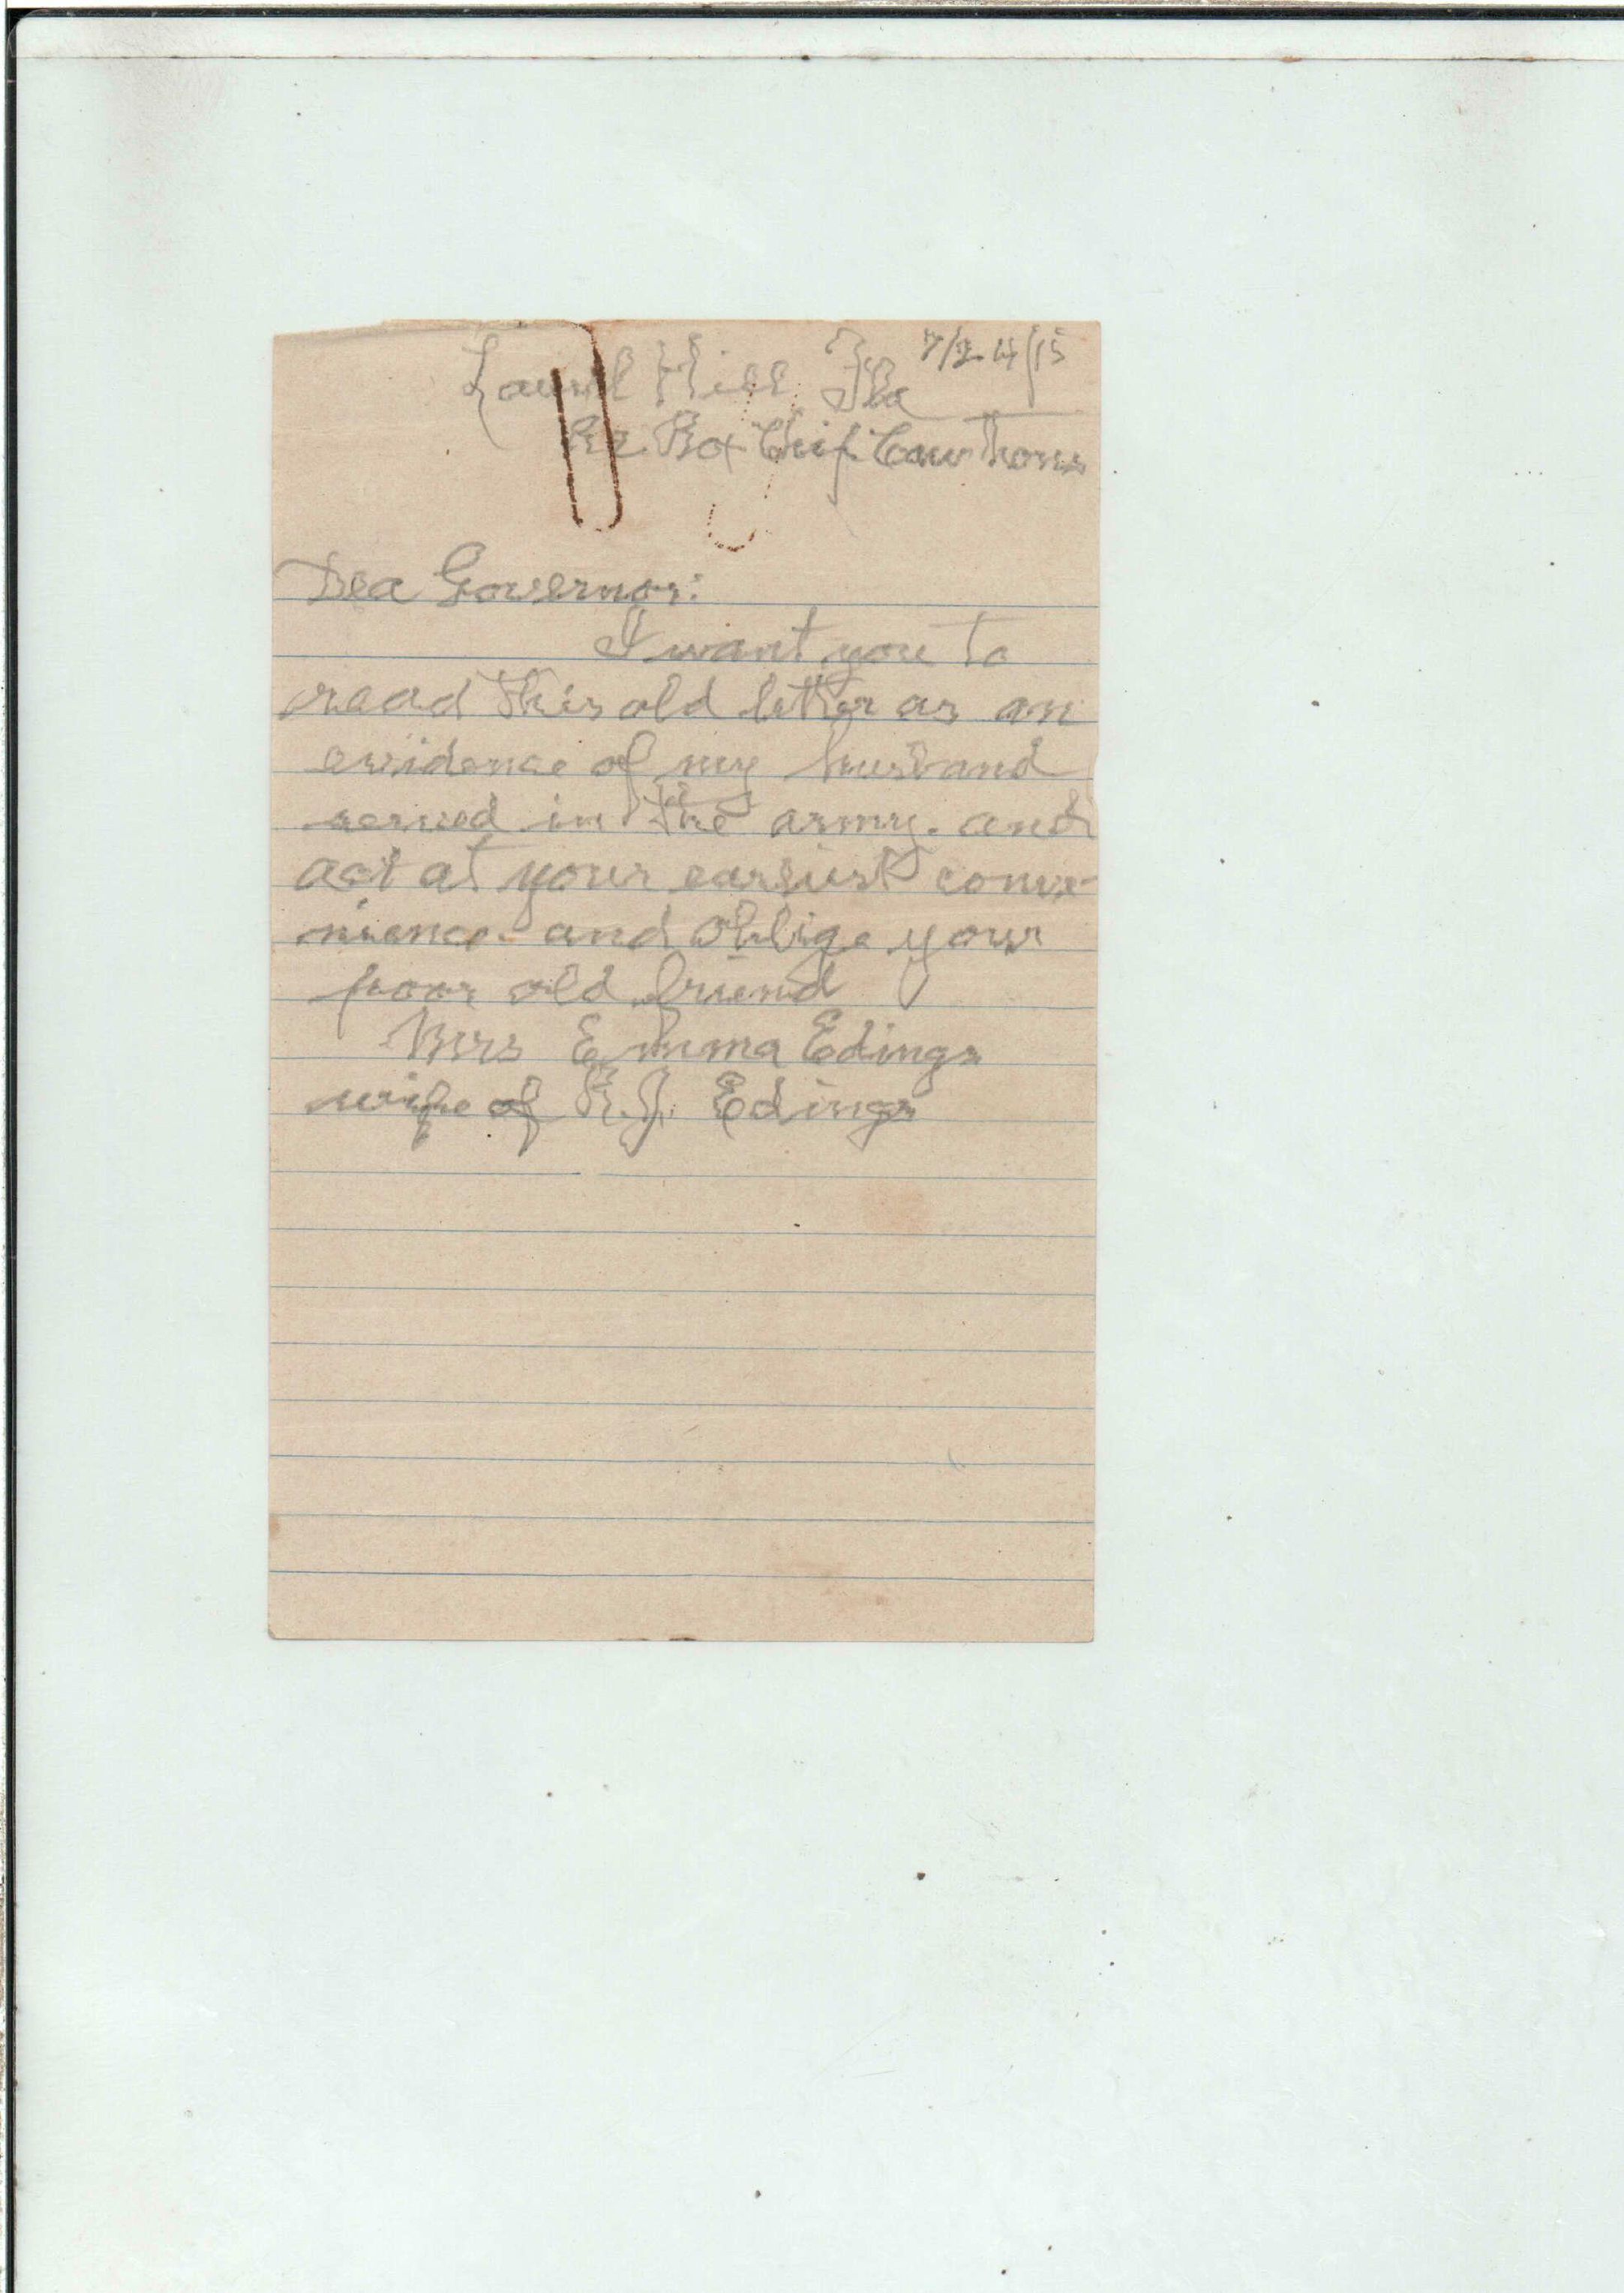 Laurel Hill Fla 7/24/15
R2 Box Chif Cawthons
Dea Governor:
I want you to
read this old letter as an
evidence of my husband
served in the army. and
act at your earliest conve-
nience. and oblige your
poor old friend
Mrs Emma Edings
wife of R.J. Edings